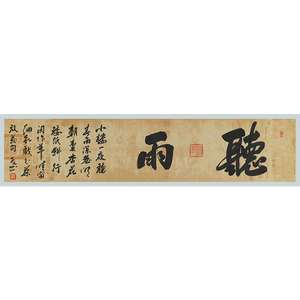 聽雨
小樓一夜聽
春雨深巷明
朝賣杏花
矮紙斜行
閑作草晴窗
細乳戲分茶
放翁句